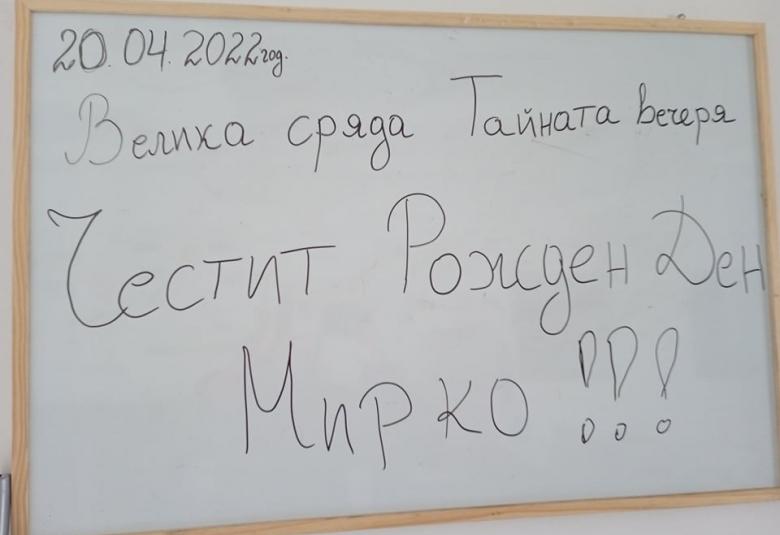 20.04.2022год.
Велика сряда Тайната вечеря
Честит Рожден Ден
Мирко !!!